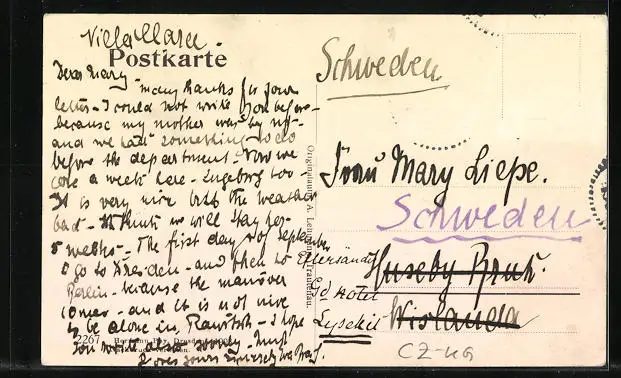 Villa Clara.
Postkarte
Dear Mary - many thanks for your
letter - I could not write you before -
because my mother was by us -
and we had something to do
before the department - Now we
are a week here - Ingeborg too -
It is very nice but the weather
bad - I think we will stay here
5 weeks - The first days of September
I go to Dresden - and then to
Berlin - because the manöver
comes - and it is not nice
to be alone in - I hope
you
yours sincerely
2267
Schweden
Frau Mary Liepe.
Schweden
Huseby Bruk.
Gd Hotel
Wislanda
Lysekil